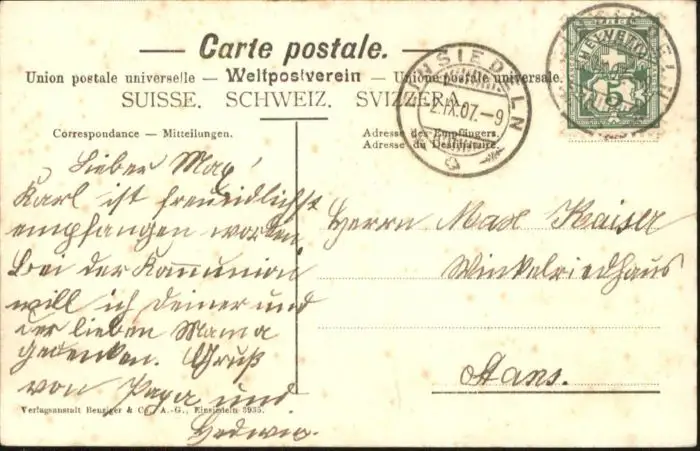 Carte postale.
Union postale universelle — Weltpostverein — Unione postale universale.
SUISSE. SCHWEIZ. SVIZZERA.
EINSIEDELN
2.IX.07.–9
HELVETIA
5
Correspondance — Mitteilungen.
Adresse des Empfängers.
Adresse du Destinataire.
Lieber Max!
Karl ist freundlichst
empfangen worden.
Bei der Kommunion
will ich Deiner und
der lieben Mama
gedenken. Gruß
von Papa und
Hedwig.
Herrn Max Kaiser
Winkelriedhaus
Stans.
Verlagsanstalt Benziger & Co. A.-G., Einsiedeln 3935.